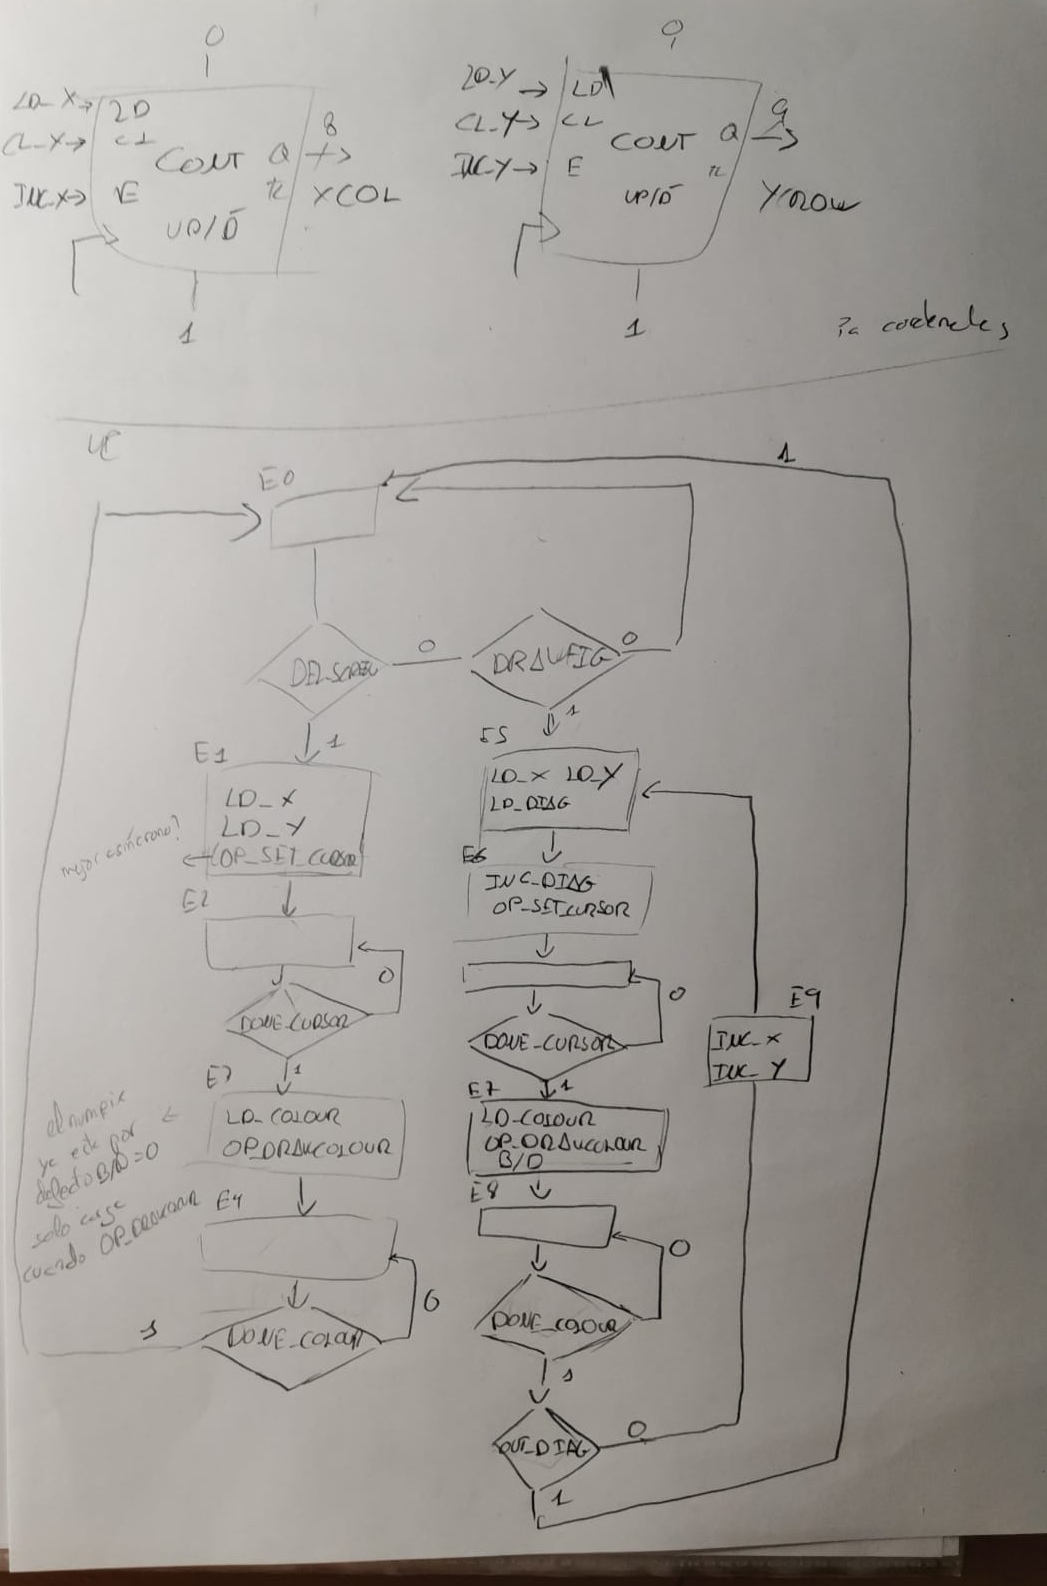 0
LD_X
LD
CL_X
CL
CONT
Q
8
INC_X
E
TC
XCOL
UP/D̄
1
0
LD_Y
LD
CL_Y
CL
CONT
Q
9
INC_Y
E
TC
YROW
UP/D̄
1
UC
1
E0
DEL_SCREEN
0
DRAWFIG
0
1
1
E1
LD_X
LD_Y
OP_SET_CURSOR
mejor asíncrono?
E2
0
DONE_CURSOR
1
E3
LD_COLOUR
OP_DRAWCOLOUR
el numpix
ya está por
defecto B/D=0
solo carga
cuando OP_DRAWCOLOUR
E4
0
DONE_COLOUR
1
E5
LD_X LD_Y
LD_DIAG
E6
INC_DIAG
OP_SETCURSOR
0
DONE_CURSOR
1
E7
LD_COLOUR
OP_DRAWCOLOUR
B/D
E8
0
DONE_COLOUR
1
OUT_DIAG
0
1
E9
INC_X
INC_Y